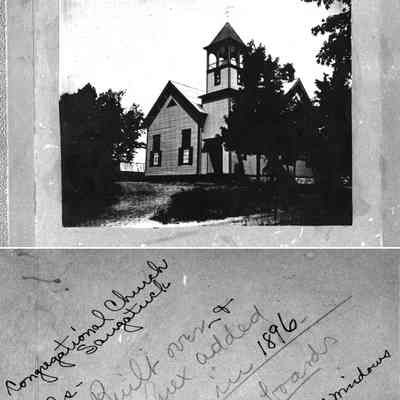 Congregational Church
Saugatuck
Built over &
added
in 1896
boards
Windows